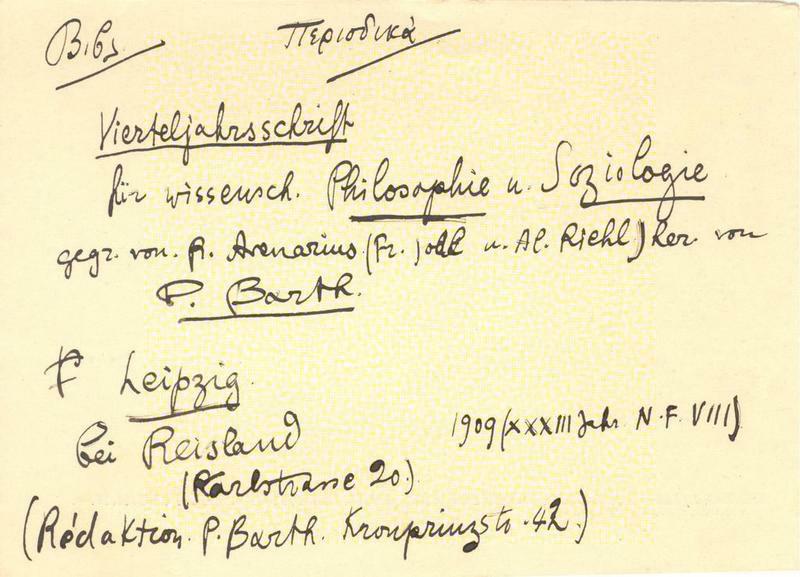 Βιβλ. Περιοδικά
Vierteljahrsschrift
für wissensch. Philosophie u. Soziologie
gegr. von. R. Avenarius (Fr. Jodl u. Al. Riehl) her. von
P. Barth.
Leipzig.
bei Reisland
1909 (XXXIII Jahr. N.F. VIII)
(Karlstrasse 20.)
(Rédaktion. P. Barth. Kronprinzstr. 42.)